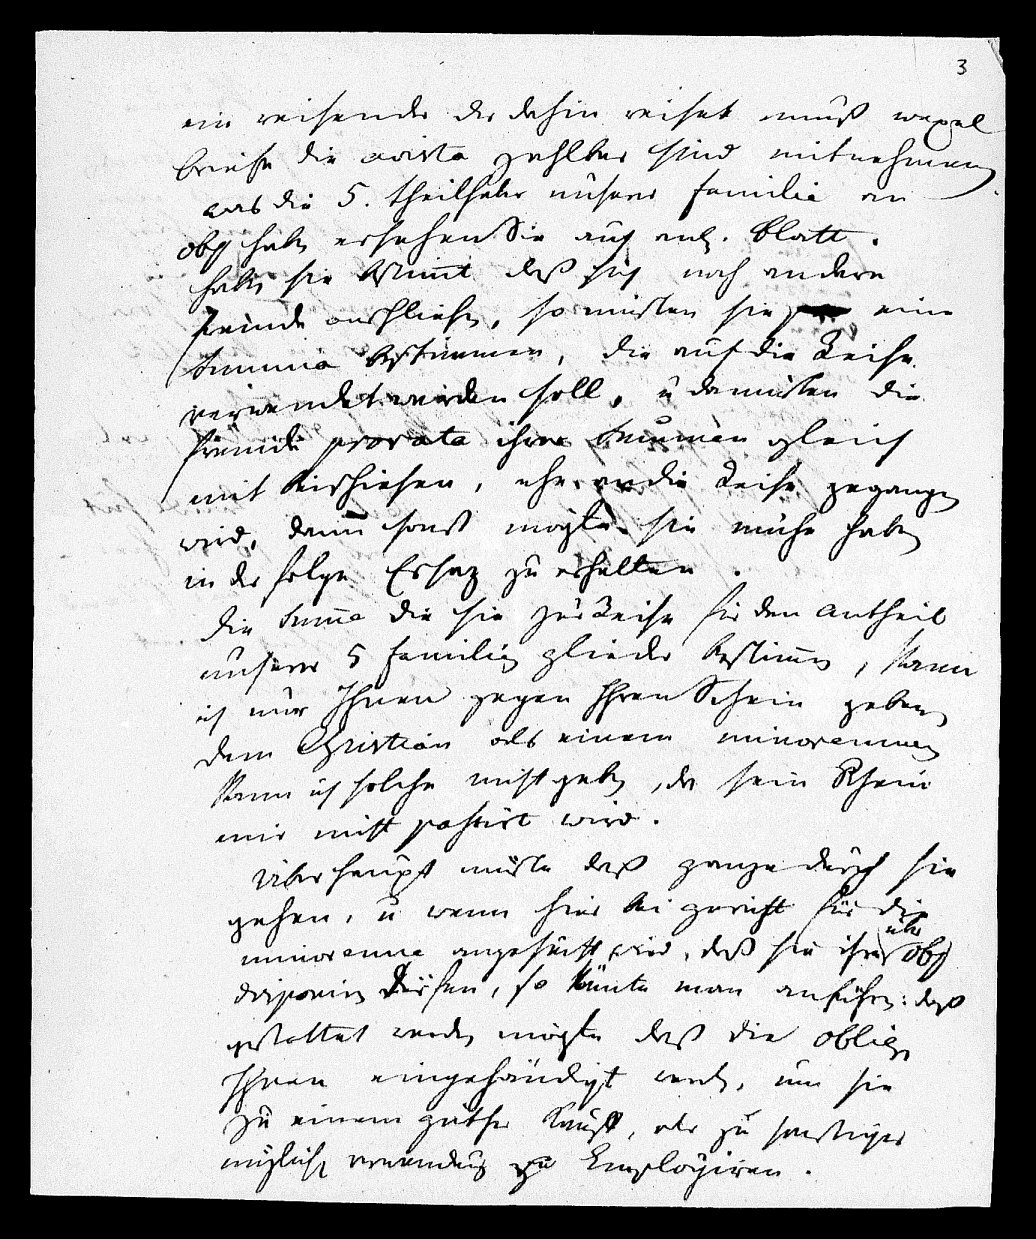 3
ein reisender der dahin reiset muß wexel
briefe die avista zahlbar sind mitnehmen
was die 5. theilhaber unserer familie an
obg haben ersehen Sie auf anl. Blatt.
haben sie bestimt daß sich noch andere
freunde anschließen, so müsten sie eine
Summa bestimmen, die auf die Reise
verwendet werden soll, u da müsten die
freunde prorata ihrer Summen gleich
mit beischiesen, ehe an die Reise gegangen
wird, denn sonst mögte sie mühe haben
in der folge Ersaz zu erhalten.
die Summe die sie zur Reise für den antheil
unserer 5 familien glieder bestimen, kann
ich nur Ihnen gegen Ihren Schein geben
dem Christian als einem minorennen
kann ich solche nicht geben, da sein Schein
mir nicht passirt wird.
Überhaupt müste daß ganze durch sie
gehen, u wenn hier bei gericht für die
minorenne angesucht wird, daß sie über ihre obg
disponiren dürfen, so könte man anführen: daß
gestattet werden mögte daß die oblig
Ihnen eingehändigt werden, um sie
zu einem güther Kauff, oder zu sonstiger
nüzlicher verwendung zu Employiren.